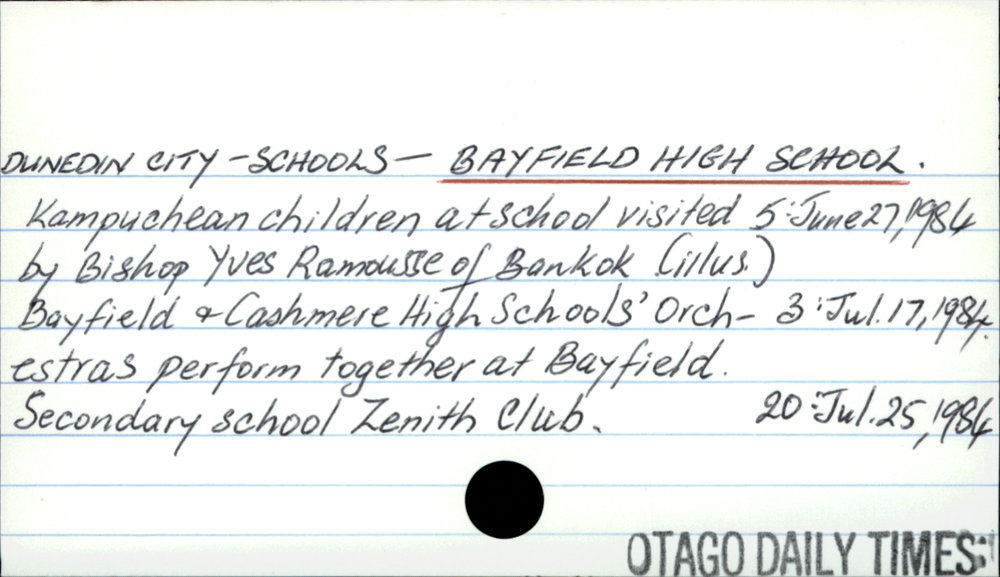 DUNEDIN CITY - SCHOOLS - BAYFIELD HIGH SCHOOL.
Kampuchean children at school visited 5:June 27, 1984
by Bishop Yves Ramousse of Bankok (illus.)
Bayfield & Cashmere High Schools' Orch- 3:Jul. 17, 1984.
estras perform together at Bayfield.
Secondary school Zenith Club. 20:Jul. 25, 1984
OTAGO DAILY TIMES: